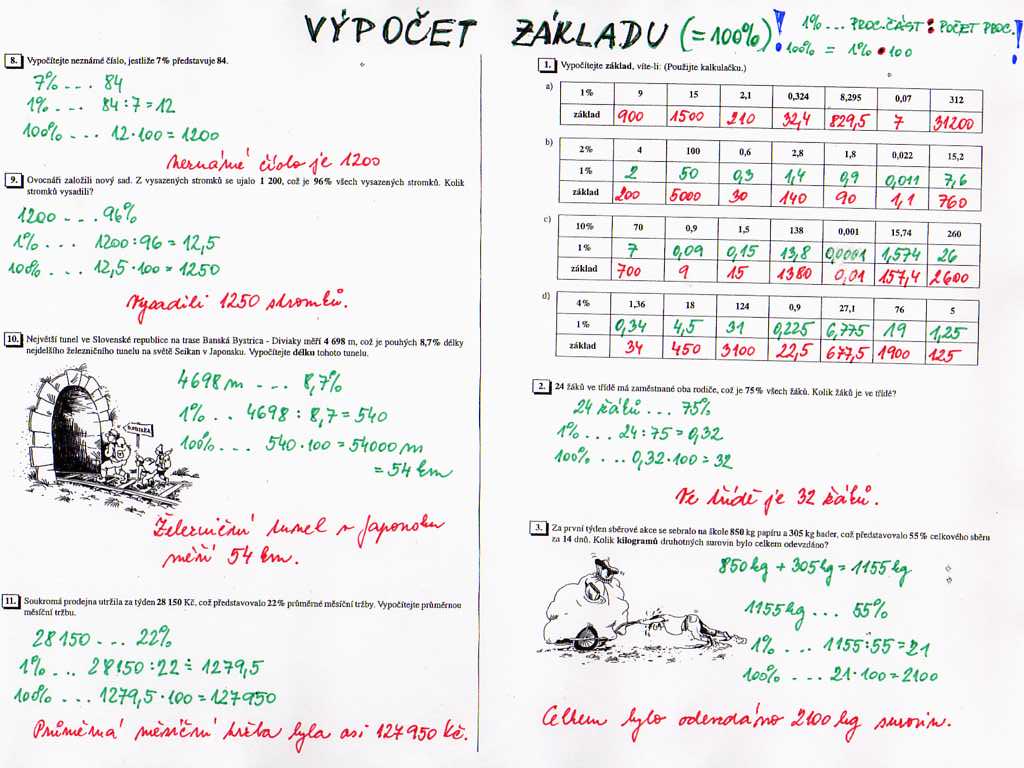 VÝPOČET ZÁKLADU (=100%)!
1% ... PROC.ČÁST : POČET PROC.!
100% = 1% • 100
8. Vypočítejte neznámé číslo, jestliže 7% představuje 84.
7% ... 84
1% ... 84 : 7 = 12
100% ... 12 · 100 = 1200
Neznámé číslo je 1200
9. Ovocnáři založili nový sad. Z vysazených stromků se ujalo 1 200, což je 96% všech vysazených stromků. Kolik
stromků vysadili?
1200 ... 96%
1% ... 1200 : 96 = 12,5
100% ... 12,5 · 100 = 1250
Vysadili 1250 stromků.
10. Největší tunel ve Slovenské republice na trase Banská Bystrica - Diviaky měří 4 698 m, což je pouhých 8,7% délky
nejdelšího železničního tunelu na světě Seikan v Japonsku. Vypočítejte délku tohoto tunelu.
4698 m ... 8,7%
1% .. 4698 : 8,7 = 540
100% ... 540 · 100 = 54000 m
= 54 km
Železniční tunel v Japonsku
měří 54 km.
11. Soukromá prodejna utržila za týden 28 150 Kč, což představovalo 22% průměrné měsíční tržby. Vypočítejte průměrnou
měsíční tržbu.
28150 ... 22%
1% ... 28150 : 22 ≐ 1279,5
100% ... 1279,5 · 100 = 127950
Průměrná měsíční tržba byla asi 127950 Kč.
1. Vypočítejte základ, víte-li: (Použijte kalkulačku.)
a) 1% 9 15 2,1 0,324 8,295 0,07 312
základ 900 1500 210 32,4 829,5 7 31200
b) 2% 4 100 0,6 2,8 1,8 0,022 15,2
1% 2 50 0,3 1,4 0,9 0,011 7,6
základ 200 5000 30 140 90 1,1 760
c) 10% 70 0,9 1,5 138 0,001 15,74 260
1% 7 0,09 0,15 13,8 0,0001 1,574 26
základ 700 9 15 1380 0,01 157,4 2600
d) 4% 1,36 18 124 0,9 27,1 76 5
1% 0,34 4,5 31 0,225 6,775 19 1,25
základ 34 450 3100 22,5 677,5 1900 125
2. 24 žáků ve třídě má zaměstnané oba rodiče, což je 75% všech žáků. Kolik žáků je ve třídě?
24 žáků ... 75%
1% ... 24 : 75 = 0,32
100% ... 0,32 · 100 = 32
Ve třídě je 32 žáků.
3. Za první týden sběrové akce se sebralo na škole 850 kg papíru a 305 kg hader, což představovalo 55% celkového sběru
za 14 dnů. Kolik kilogramů druhotných surovin bylo celkem odevzdáno?
850 kg + 305 kg = 1155 kg
1155 kg ... 55%
1% ... 1155 : 55 = 21
100% ... 21 · 100 = 2100
Celkem bylo odevzdáno 2100 kg surovin.